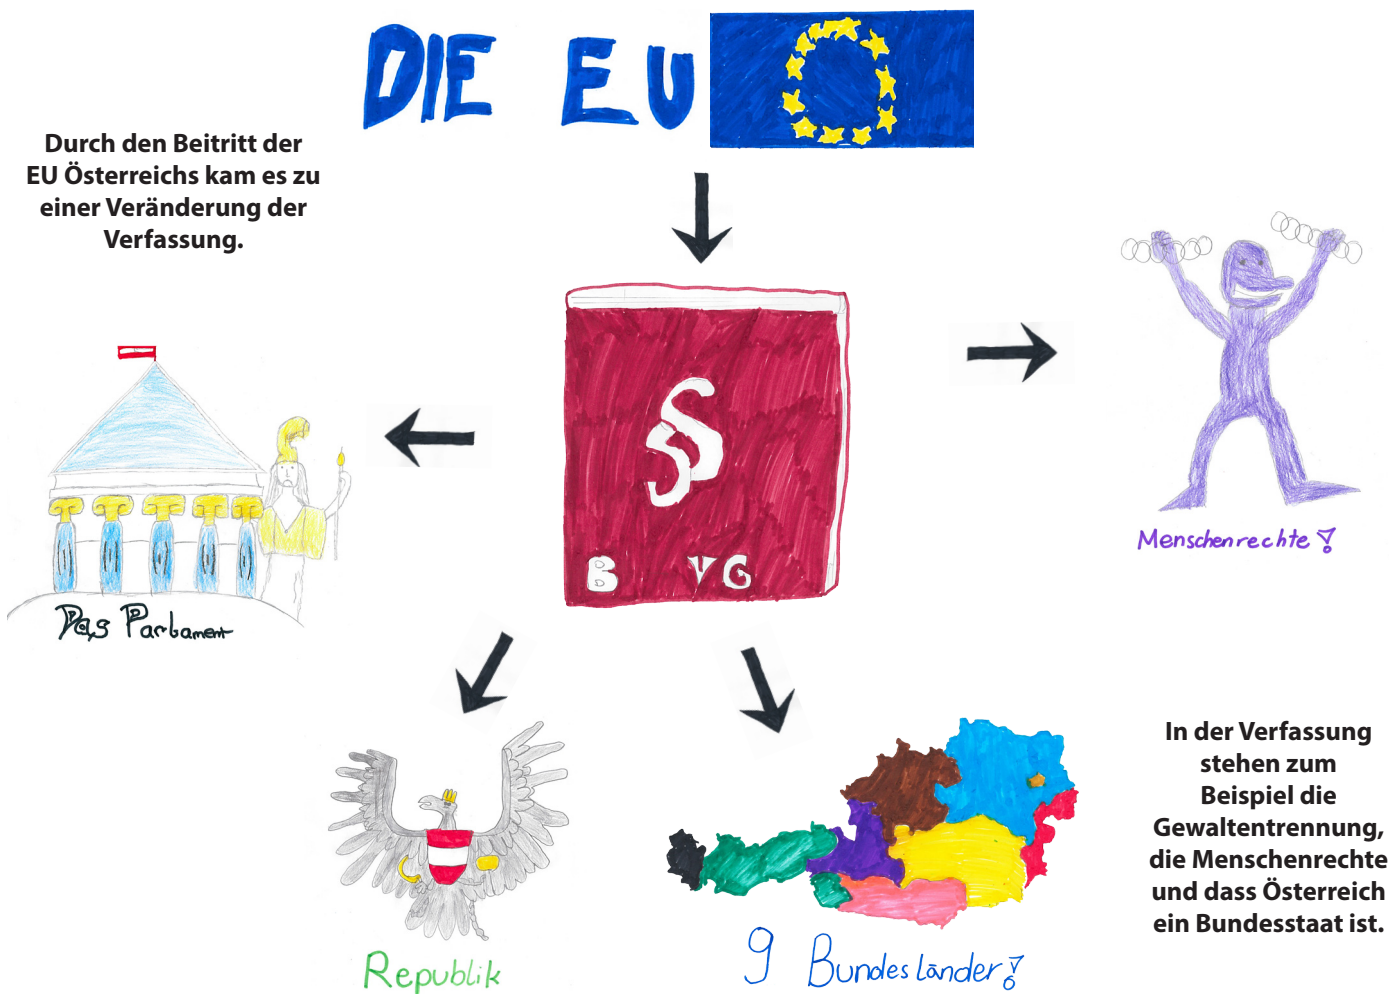 DIE EU
Durch den Beitritt der
EU Österreichs kam es zu
einer Veränderung der
Verfassung.
§
B VG
Menschenrechte!
Das Parlament
Republik
9 Bundesländer!
In der Verfassung
stehen zum
Beispiel die
Gewaltentrennung,
die Menschenrechte
und dass Österreich
ein Bundesstaat ist.